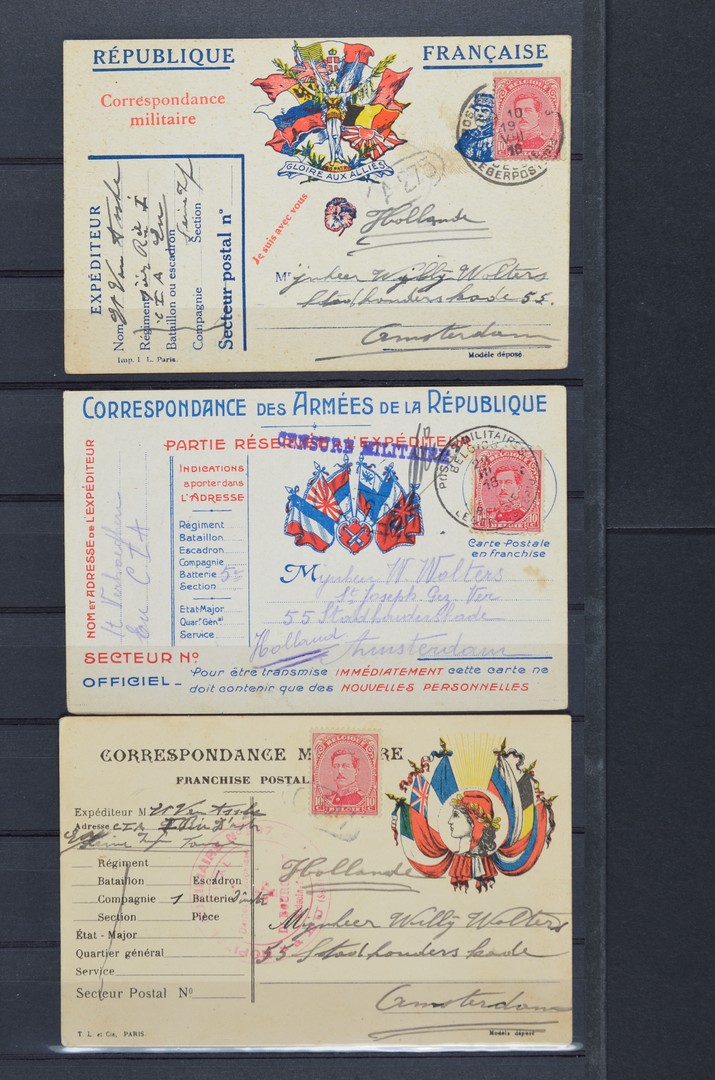 RÉPUBLIQUE FRANÇAISE
Correspondance
militaire
GLOIRE AUX ALLIÉS
Je suis avec vous
BELGIQUE
10 10
LEGERPOST
A 275
EXPÉDITEUR
Nom
Régiment
Bataillon ou escadron
Compagnie Section
Secteur postal n°
Hollande
Mr Willy Wolters
Stadhonderskade 55.
Amsterdam
Imp. I. L. Paris.
Modèle déposé
CORRESPONDANCE DES ARMÉES DE LA RÉPUBLIQUE
PARTIE RÉSERVÉE A L'EXPÉDITEUR
CENSURE MILITAIRE
NOM ET ADRESSE DE L'EXPÉDITEUR
C I A
INDICATIONS
a porter dans
L'ADRESSE
Régiment
Bataillon
Escadron
Compagnie
Batterie
Section
Etat-Major
Quar. Gén.al
Service
BELGIQUE
10 10
Carte Postale
en franchise
Mijnheer W Wolters
St Joseph Gez. Ver
55 Stadhouderskade
Holland Amsterdam
SECTEUR No
OFFICIEL _ Pour être transmise IMMÉDIATEMENT cette carte ne
doit contenir que des NOUVELLES PERSONNELLES
BELGIQUE
10 10
BELGIË
CORRESPONDANCE M RE
FRANCHISE POSTAL
Expéditeur M
Adresse C I A
Régiment
Bataillon Escadron
Compagnie 1 Batterie
Section Pièce
État - Major
Quartier général
Service
Secteur Postal No
Hollande
Mijnheer Willy Wolters
55 Stadhonderskade
Amsterdam
T. L. et Cie, PARIS.
Modèle déposé